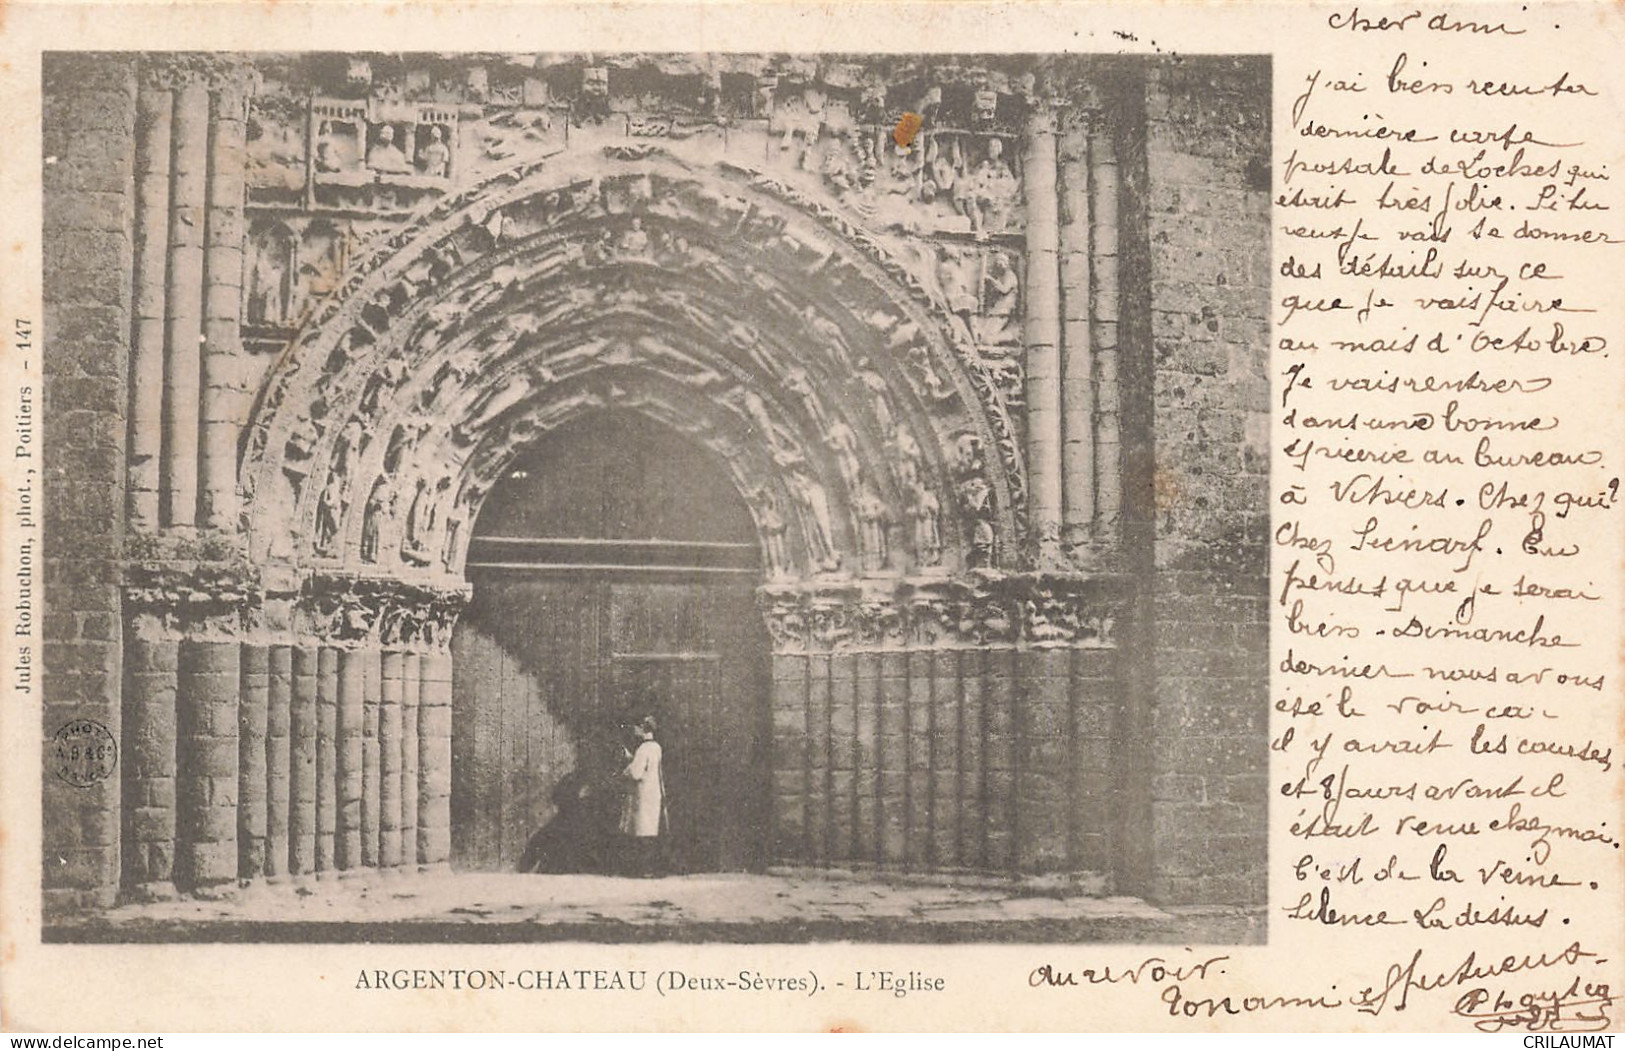 cher ami .
J'ai bien reçu ta
dernière carte
postale de Loches qui
était très jolie. Si tu
veux je vais te donner
des détails sur ce
que je vais faire
au mois d'Octobre.
Je vais rentrer
dans une bonne
épicerie au bureau
à Vihiers. Chez qui?
Chez Liénart. Tu
penses que je serai
bien. Dimanche
dernier nous avons
été le voir car
il y avait les courses,
et 8 jours avant il
était venu chez moi.
C'est de la veine.
Silence La dessus.
au revoir.
Ton ami effectueux
Jules Robuchon, phot., Poitiers - 147
PHOT
A.B & Cie
NANCY
ARGENTON-CHATEAU (Deux-Sèvres). - L'Eglise
delcampe.net
CRILAUMAT